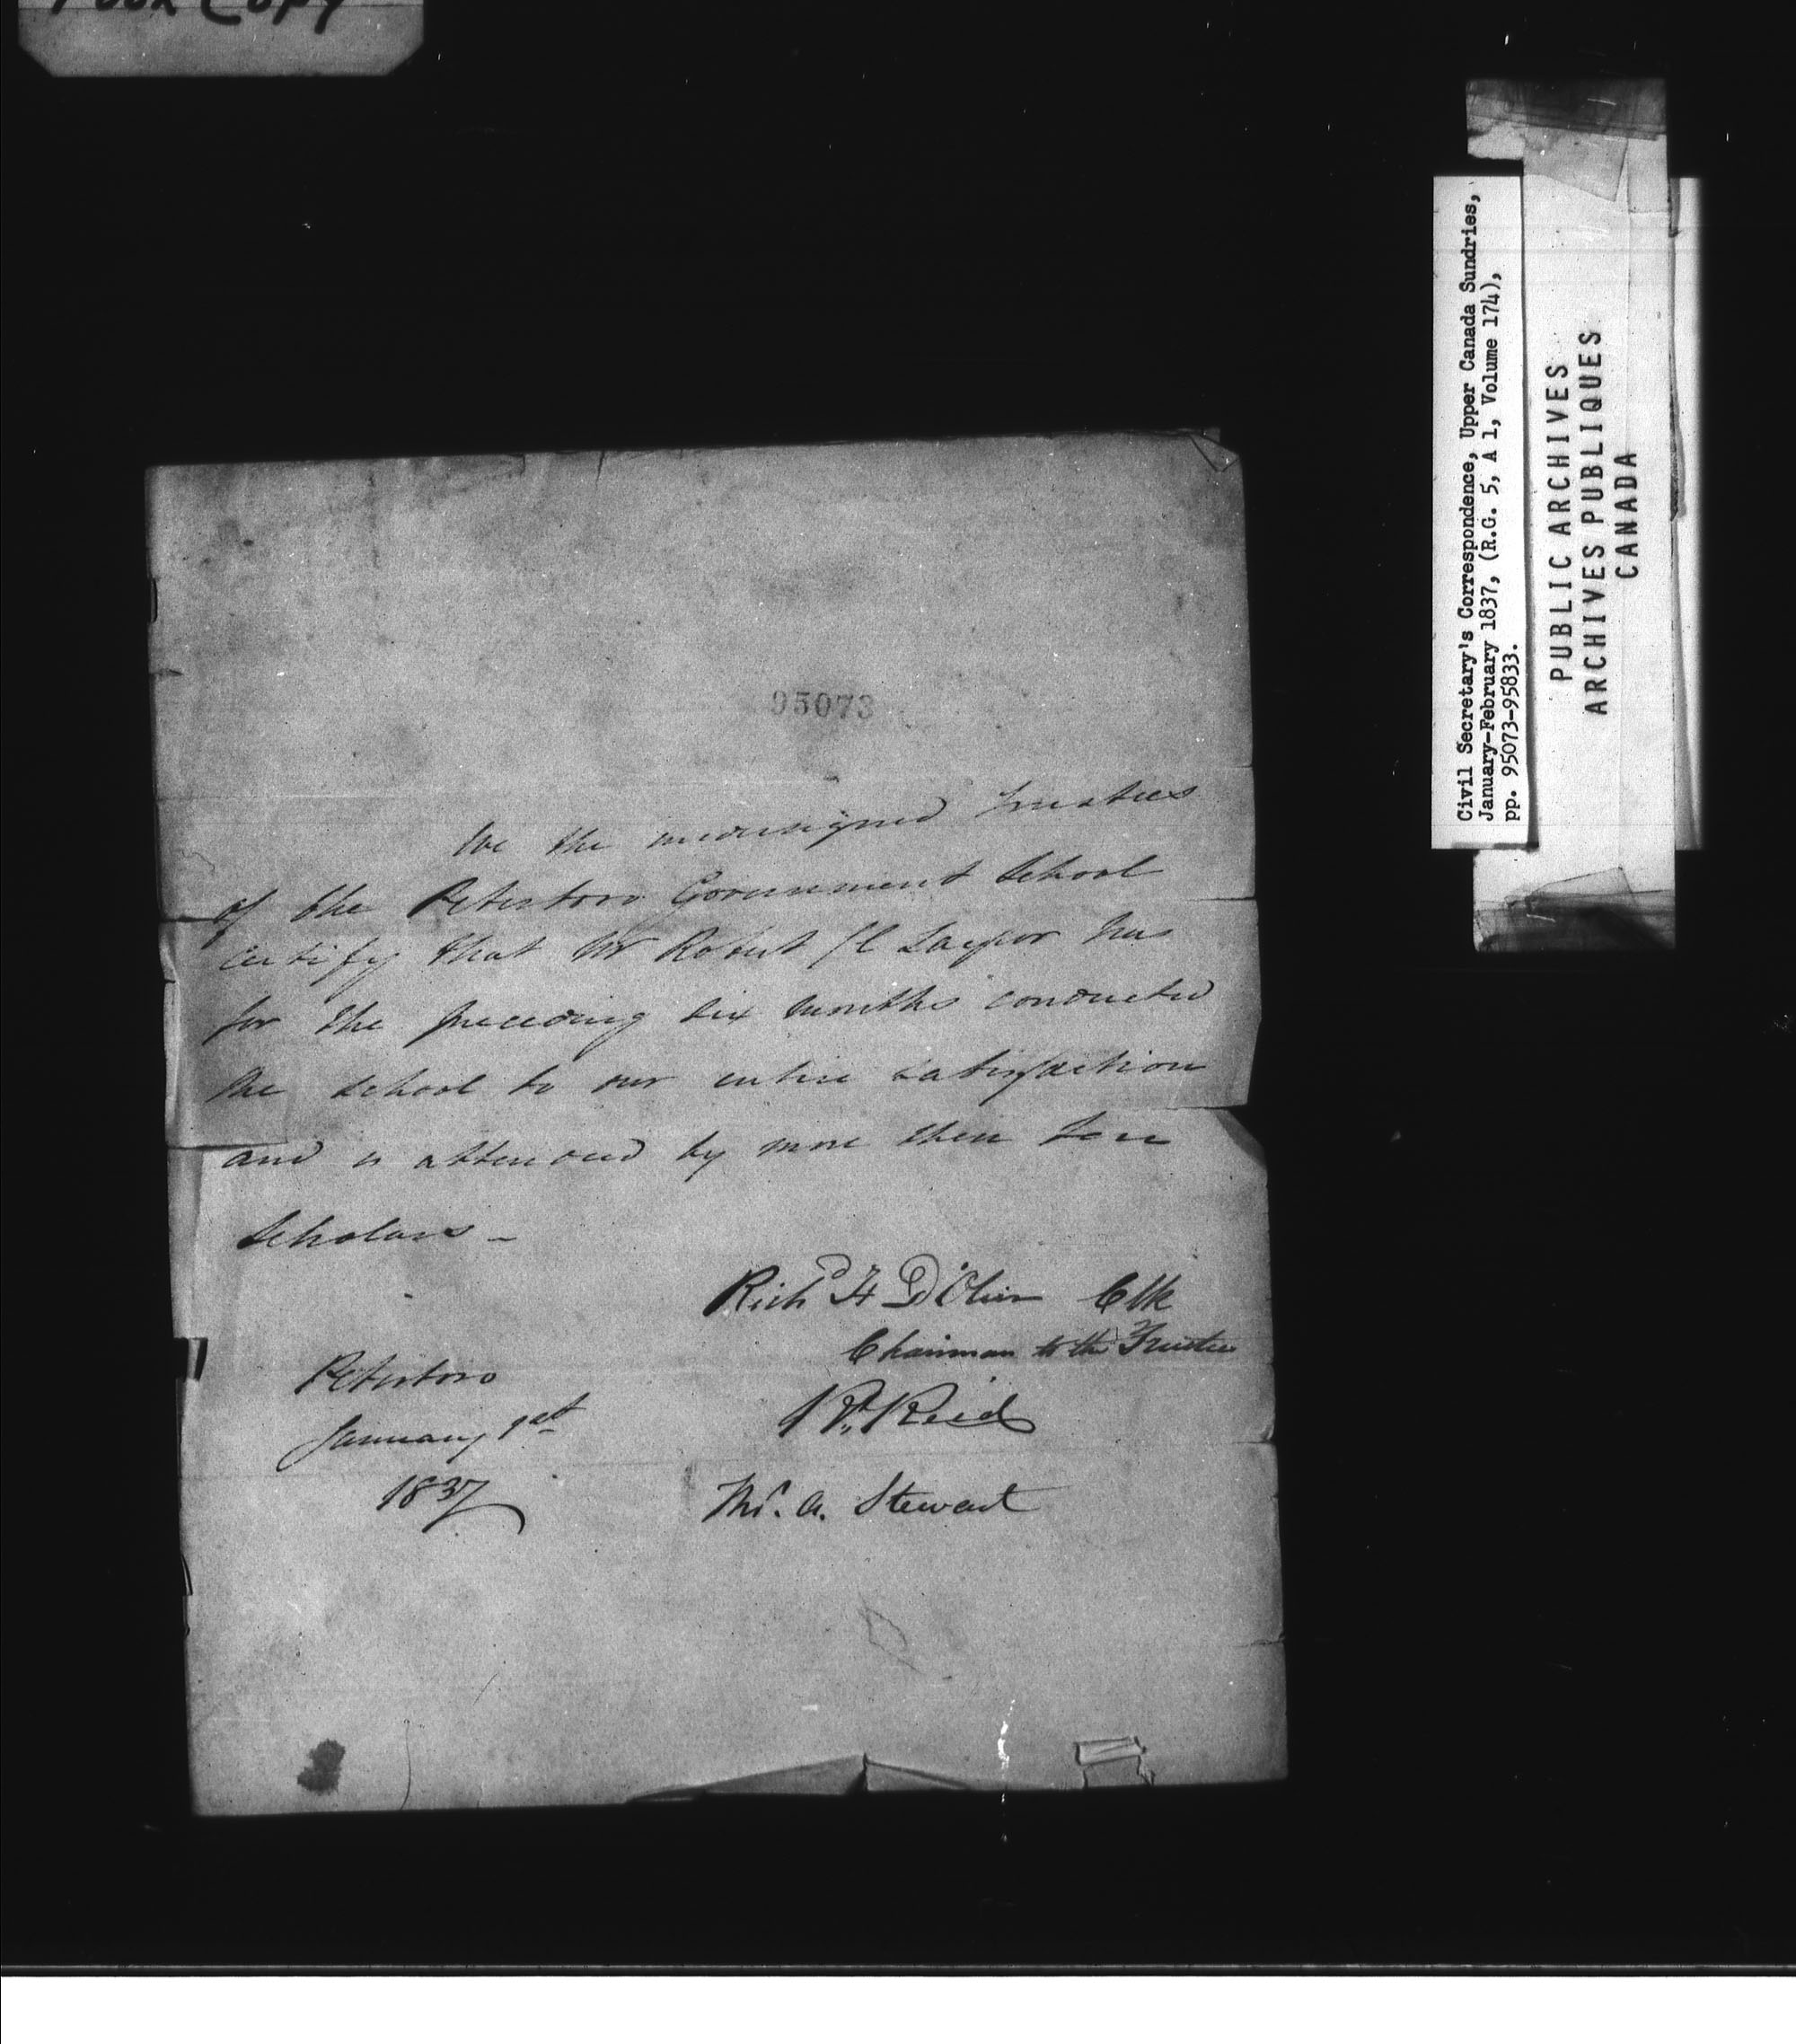 Poor Copy
95073
We the undersigned Trustees
of the Peterboro Government School
certify that Mr Robert J C Taylor has
for the preceding six months conducted
the school to our entire satisfaction
and is attended by more then ten
Scholars -
Richd H D'Olier Clk
Chairman to the Trustees
Rt. Reid
Ths. A. Stewart
Peterboro
January 1st
1837
Civil Secretary's Correspondence, Upper Canada Sundries,
January-February 1837, (R.G. 5, A 1, Volume 174),
pp. 95073-95833.
PUBLIC ARCHIVES
ARCHIVES PUBLIQUES
CANADA